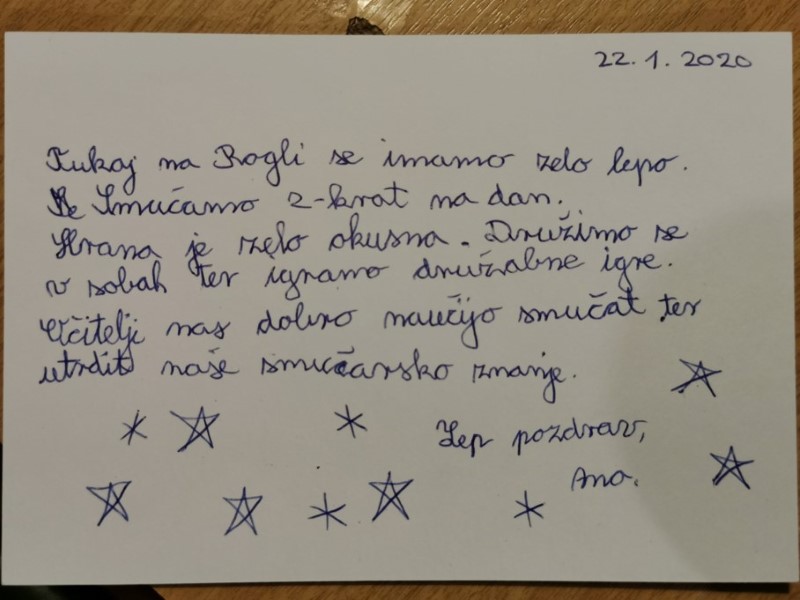 22. 1. 2020
Tukaj na Rogli se imamo zelo lepo.
Smučamo 2-krat na dan.
Hrana je zelo okusna. Družimo se
v sobah ter igramo družabne igre.
Učitelji nas dobro naučijo smučat ter
utrdit naše smučarsko znanje.
Lep pozdrav,
Ana.